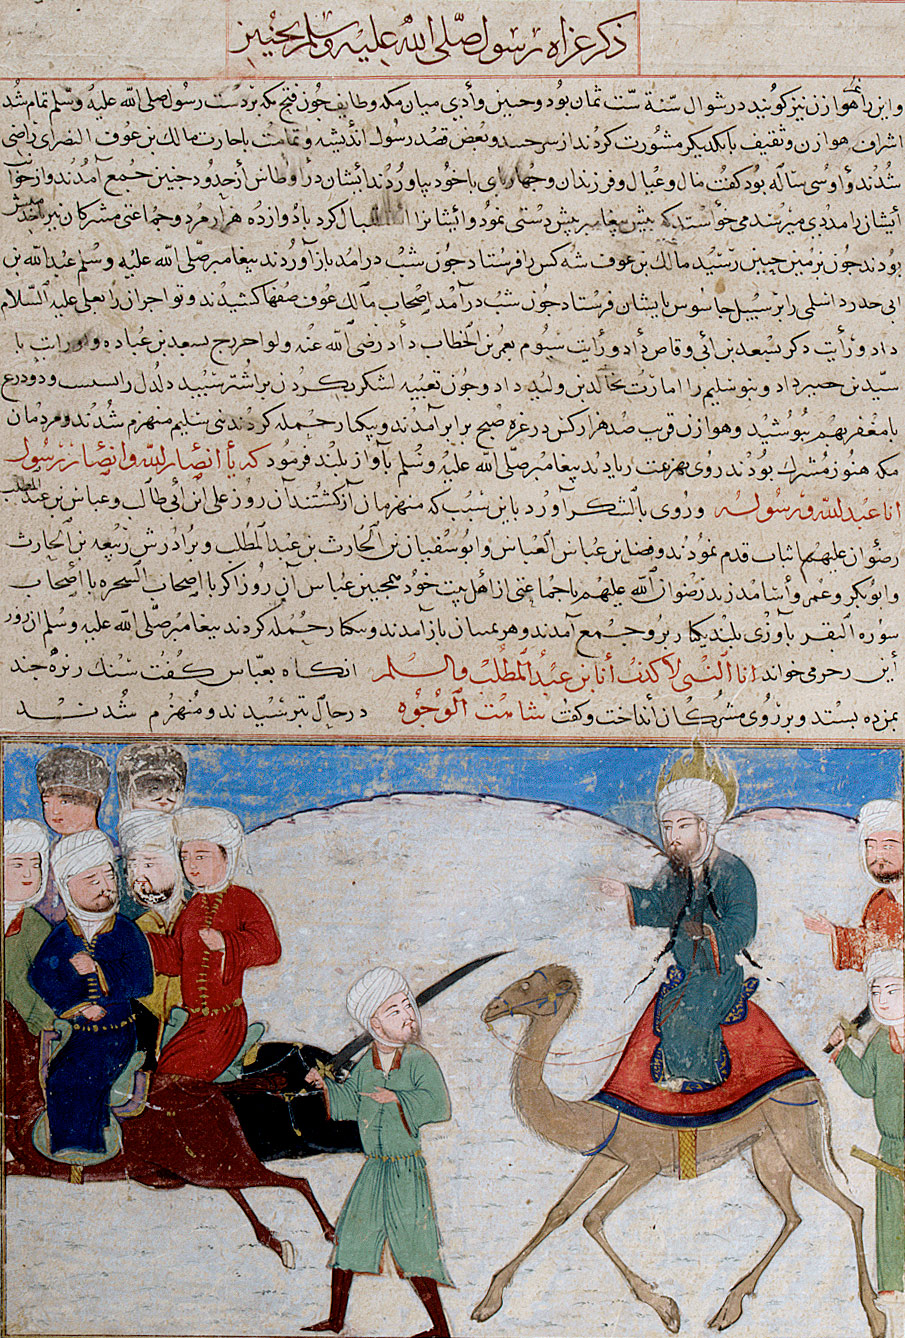 ذکر غزاه رسول صلّی الله علیه وسلم بحنین
و این را هوازن نیز کویند در شوال سنة ست ثمان بود و حنین وادیی میان مکه و طایف چون فتح مکه بر دست رسول صلی الله علیه وسلم تمام شد
اشراف هوازن و ثقیف با یکدیکر مشورت کردند از سر حسد و بغض قصد رسول اندیشه و تمامت باحارت مالک بن عوف النضری راضی
شدند و او سی ساله بود کفت مال و عیال و فرزندان و چهارپای با خود بیاورید ایشان در اوطاس از حدود حنین جمع آمدند و از
ایشان را مددی میرسند می خواست که پیش پیغامبر پیش دستی نمود و ایشانرا استقبال کرد با دوازده هزار مرد و جماعتی مشرکان نیز
بودند چون بزمین حنین رسید مالک بن عوف سه کس را فرستاد چون شب درامد باز آوردند پیغامبر صلّی الله علیه وسلم عبد الله بن
ابی حدرد اسلمی را بر سبیل جاسوس بایشان فرستاد چون شب درآمد اصحاب مالک عوف صفها کشیدند و لواء مهاجران را بعلی علیه السّلام
داد و رایت دکر بسعد بن ابی وقاص داد و رایت سیوم بعمر بن الخطاب داد رضی الله عنه و لواء خزرج بسعد بن عباده و
سیّد بن حضیر داد و بنو سلیم را امارت بخالد بن ولید داد و چون تعبیه لشکر بکردن بر اشتر سپید دلدل و دو درع
با مغفر بهم بپوشید و هوازن قرب صد هزار کس در غره صبح برابر آمدند و بیکبار حمله کردند بنی سلیم منهزم شدند و مردمان
مکه هنوز مشرک بودند روی بهزیمت پیغامبر صلّی الله علیه وسلم بآواز بلند فرمود که یا انصار الله وانصار رسول
انا عبد الله ورسوله و روی بالشکر آورد باین سبب که منهزمان بازکشتند آن روز علی ابن ابی طالب و عباس بن عبد المطلب
رضوان علیهم ثبات قدم نمودند و فضل بن عباس العباس و ابو سفیان بن الحارث بن عبد المطلب و برادرش ربیعه بن الحارث
و ابوبکر و عمر و اسامه زید رضوان الله علیهم با جماعتی از اهل بیت خود همچنین عباس آن روز اکر با اصحاب الشجره یا اصحاب
سوره البقر بآوازی بلند یکبار جمع آمدند و باز آمدند و بیکبار حمله کردند پیغامبر صلّی الله علیه وسلم ان روز
این رجز می خواند انا النبی لا کذب انا بن عبد المطلب والسلم انکاه بعباس کفت سنک ریزه چند
بمن ده بستد و بر روی مشرکان انداخت و کفت شاهت الوجوه در حال بترسیدند و منهزم شدند